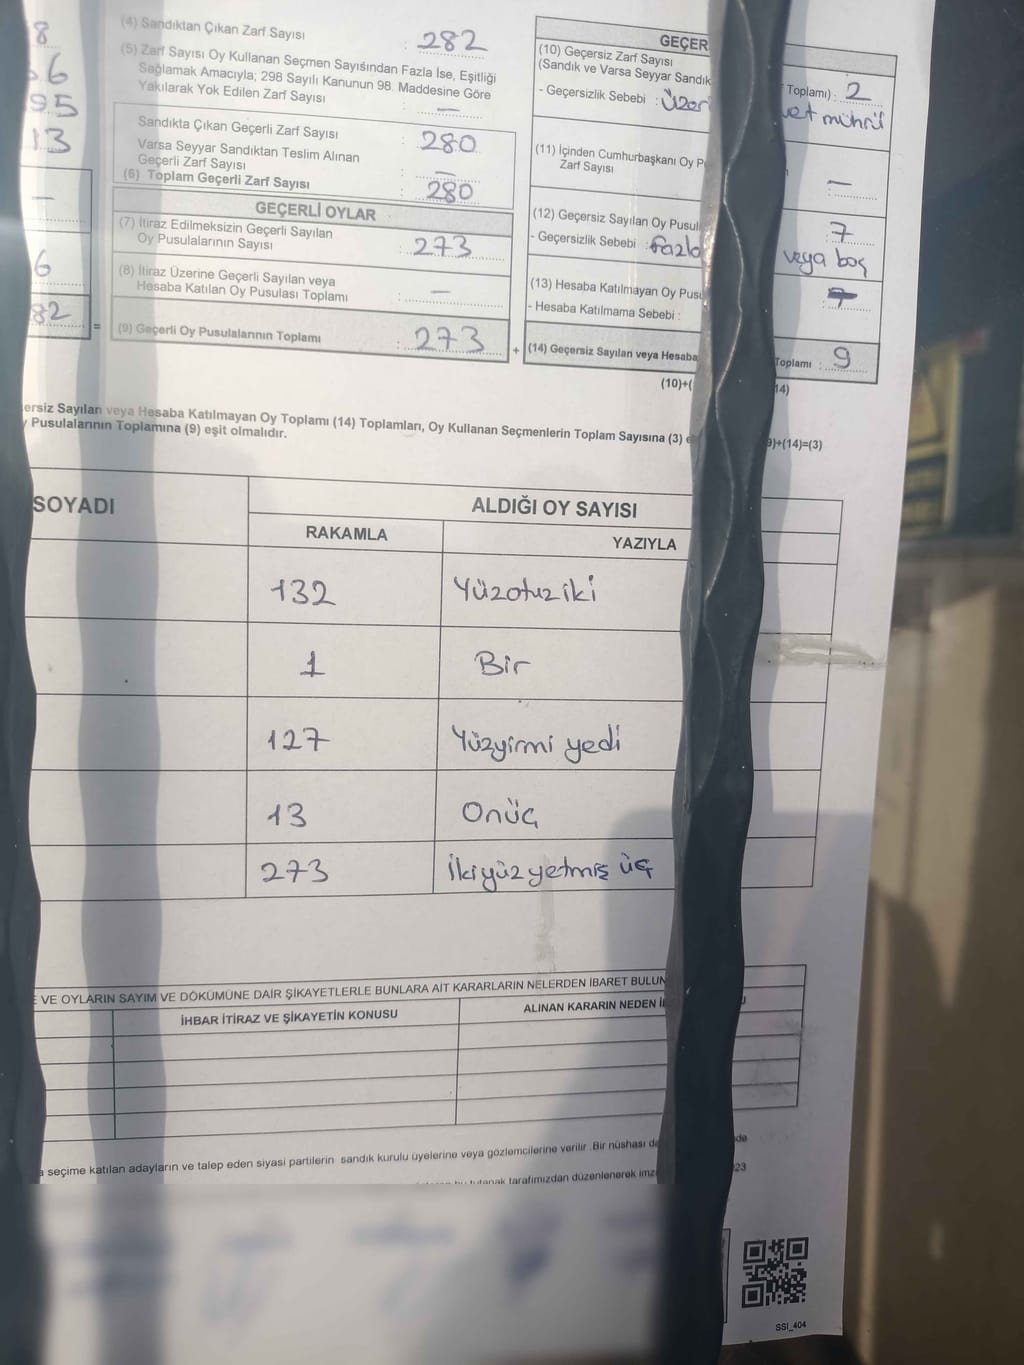 8
6
95
13
6
82
=
(4) Sandıktan Çıkan Zarf Sayısı : 282
(5) Zarf Sayısı Oy Kullanan Seçmen Sayısından Fazla İse, Eşitliği
Sağlamak Amacıyla; 298 Sayılı Kanunun 98. Maddesine Göre
Yakılarak Yok Edilen Zarf Sayısı : —
Sandıkta Çıkan Geçerli Zarf Sayısı : 280
Varsa Seyyar Sandıktan Teslim Alınan
Geçerli Zarf Sayısı : —
(6) Toplam Geçerli Zarf Sayısı : 280
GEÇERLİ OYLAR
(7) İtiraz Edilmeksizin Geçerli Sayılan
Oy Pusulalarının Sayısı : 273
(8) İtiraz Üzerine Geçerli Sayılan veya
Hesaba Katılan Oy Pusulası Toplamı : —
(9) Geçerli Oy Pusulalarının Toplamı : 273
+
GEÇER
(10) Geçersiz Zarf Sayısı
(Sandık ve Varsa Seyyar Sandık Toplamı) : 2
- Geçersizlik Sebebi : Üzeri vet mührü
(11) İçinden Cumhurbaşkanı Oy P
Zarf Sayısı : —
(12) Geçersiz Sayılan Oy Pusul 7
- Geçersizlik Sebebi : fazla veya boş
(13) Hesaba Katılmayan Oy Pusu
- Hesaba Katılmama Sebebi :
(14) Geçersiz Sayılan veya Hesaba Toplamı : 9
(10)+( 14)
ersiz Sayılan veya Hesaba Katılmayan Oy Toplamı (14) Toplamları, Oy Kullanan Seçmenlerin Toplam Sayısına (3) e 9)+(14)=(3)
y Pusulalarının Toplamına (9) eşit olmalıdır.
SOYADI
ALDIĞI OY SAYISI
RAKAMLA YAZIYLA
132 Yüzotuz iki
1 Bir
127 Yüzyirmi yedi
13 Onüç
273 İkiyüz yetmiş üç
E VE OYLARIN SAYIM VE DÖKÜMÜNE DAİR ŞİKAYETLERLE BUNLARA AİT KARARLARIN NELERDEN İBARET BULUN
İHBAR İTİRAZ VE ŞİKAYETİN KONUSU ALINAN KARARIN NEDEN İ
a seçime katılan adayların ve talep eden siyasi partilerin sandık kurulu üyelerine veya gözlemcilerine verilir. Bir nüshası de
bu tutanak tarafımızdan düzenlenerek imz 023
SSI_404